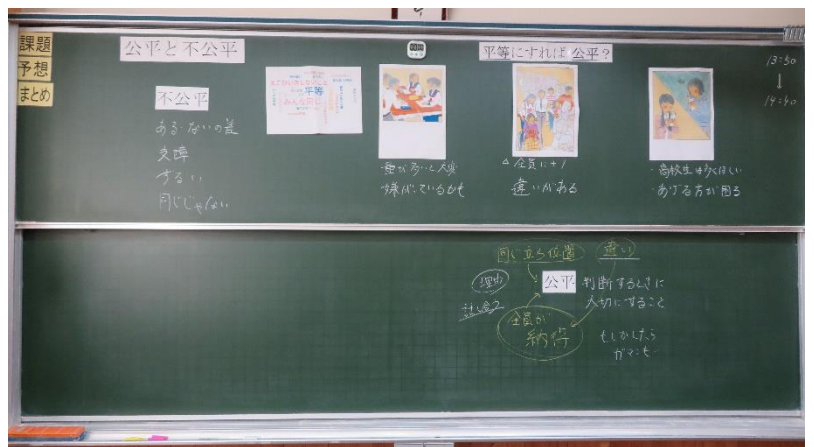 課題
予想
まとめ
公平と不公平
不公平
ある・ないの差
支障
ずるい
同じじゃない
平等
みんな同じ
平等にすれば公平？
・量が多いと大変
嫌がっているかも
△全員に+1
違いがある
・高校生は多くほしい
・あげる方が困る
13:50
↓
14:40
同じ立ち位置
違い
理由
話し合い
公平
判断するときに
大切にすること
全員が
納得
もしかしたら
ガマンも…